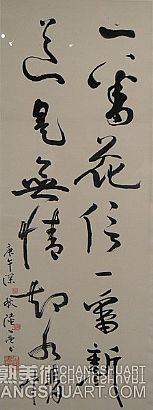 一番花信一番新
道是無情却有情
庚午深
美術
ANGSHUART.COM